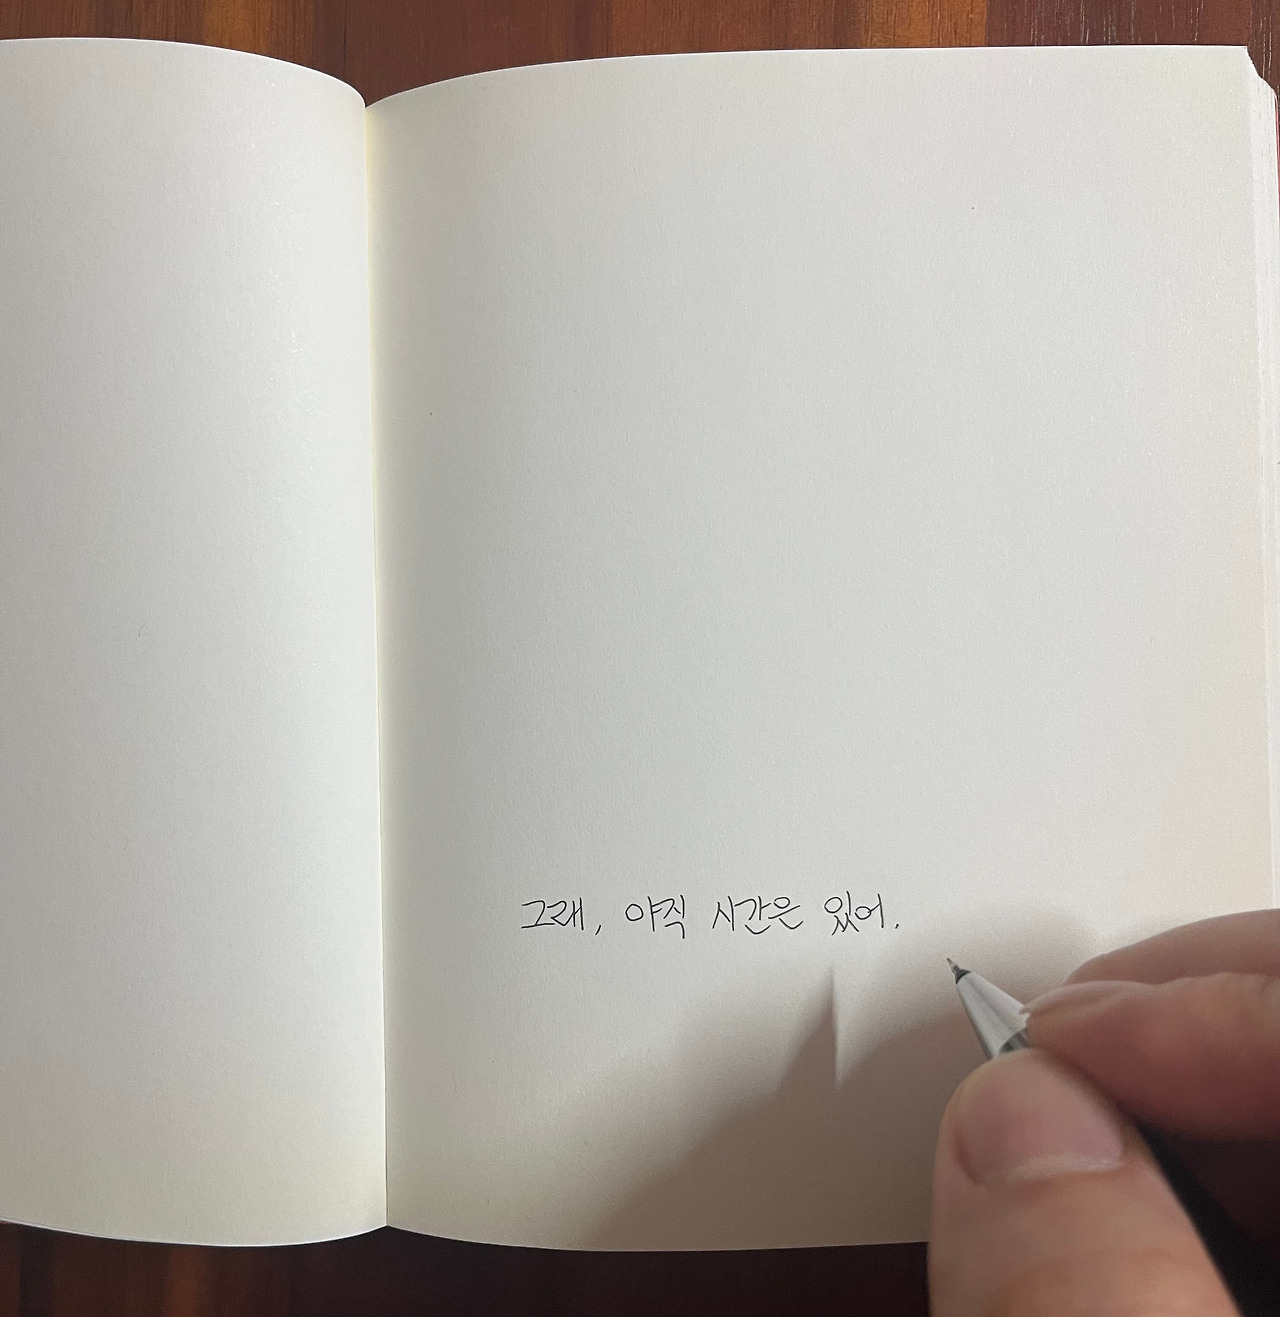 그래, 아직 시간은 있어.